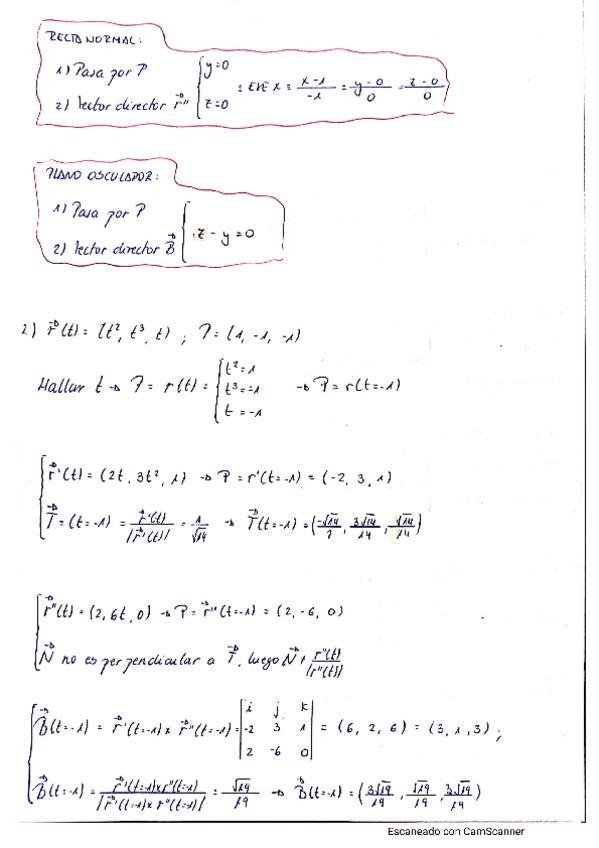 RECTA NORMAL:
1) Pasa por P
2) Vector director r⃗'' { y=0 z=0 : EJE X = (x-1)/-1 = (y-0)/0 = (z-0)/0
PLANO OSCULADOR:
1) Pasa por P
2) Vector director B⃗ { z - y = 0
2) r⃗(t) = (t², t³, t) ; P = (1, -1, -1)
Hallar t → P = r(t) = { t² = 1 t³ = -1 t = -1 → P = r(t=-1)
r⃗'(t) = (2t, 3t², 1) → P = r'(t=-1) = (-2, 3, 1)
T⃗ = (t=-1) = r⃗'(t)/|r⃗'(t)| = 1/√14 → T⃗(t=-1) = (-√14/7, 3√14/14, √14/14)
r⃗''(t) = (2, 6t, 0) → P = r⃗''(t=-1) = (2, -6, 0)
N⃗ no es perpendicular a T⃗, luego N⃗ ≠ r''(t)/|r''(t)|
B⃗(t=-1) = r⃗'(t=-1) x r⃗''(t=-1) = | i j k -2 3 1 2 -6 0 | = (6, 2, 6) = (3, 1, 3) ;
B⃗(t=-1) = r⃗'(t=-1) x r''(t=-1)/|r⃗'(t=-1) x r''(t=-1)| = √19/19 → B⃗(t=-1) = (3√19/19, √19/19, 3√19/19)
Escaneado con CamScanner